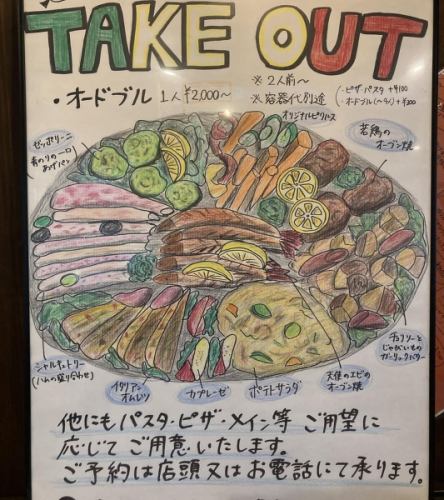 TAKE OUT
・オードブル 1人 ¥2,000〜
※2人前〜
※容器代別途
・ピザ・パスタ +¥100
・オードブル(〜4人) +¥300
オリジナルピクルス
ゼッポリーニ
青のりの一口
あげパン
若鶏の
オーブン焼
シャルキュトリー
(ハムの盛り合わせ)
イタリアン
オムレツ
カプレーゼ
ポテトサラダ
天使のエビの
オーブン焼
チョリソーと
じゃがいもの
ガーリックバター
他にもパスタ・ピザ・メイン等 ご用望に
応じてご用意いたします。
ご予約は店頭又はお電話にて承ります。